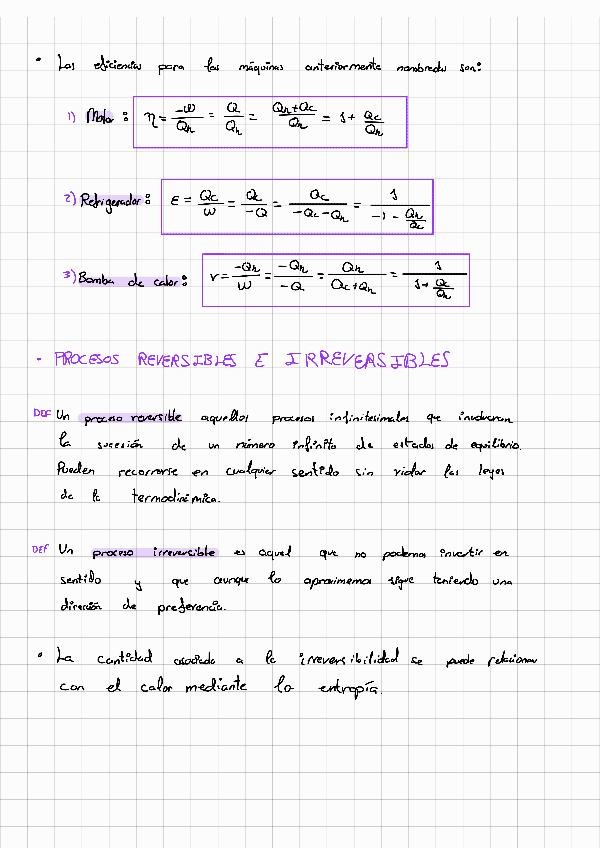 • Las eficiencias para las máquinas anteriormente nombradas son:
1) Motor: η = -W/Qh = Q/Qh = Qh+Qc/Qh = 1 + Qc/Qh
2) Refrigerador: ε = Qc/W = Qc/-Q = Qc/-Qc-Qh = 1/-1-Qh/Qc
3) Bomba de calor: v = -Qh/W = -Qh/-Q = Qh/Qc+Qh = 1/1+Qc/Qh
- PROCESOS REVERSIBLES E IRREVERSIBLES
DEF Un proceso reversible aquellos procesos infinitesimales que involucran
la sucesión de un número infinito de estados de equilibrio.
Pueden recorrerse en cualquier sentido sin violar las leyes
de la termodinámica.
DEF Un proceso irreversible es aquel que no podemos invertir en
sentido y que aunque lo aproximemos sigue teniendo una
dirección de preferencia.
• La cantidad asociada a la irreversibilidad se puede relacionar
con el calor mediante la entropía.